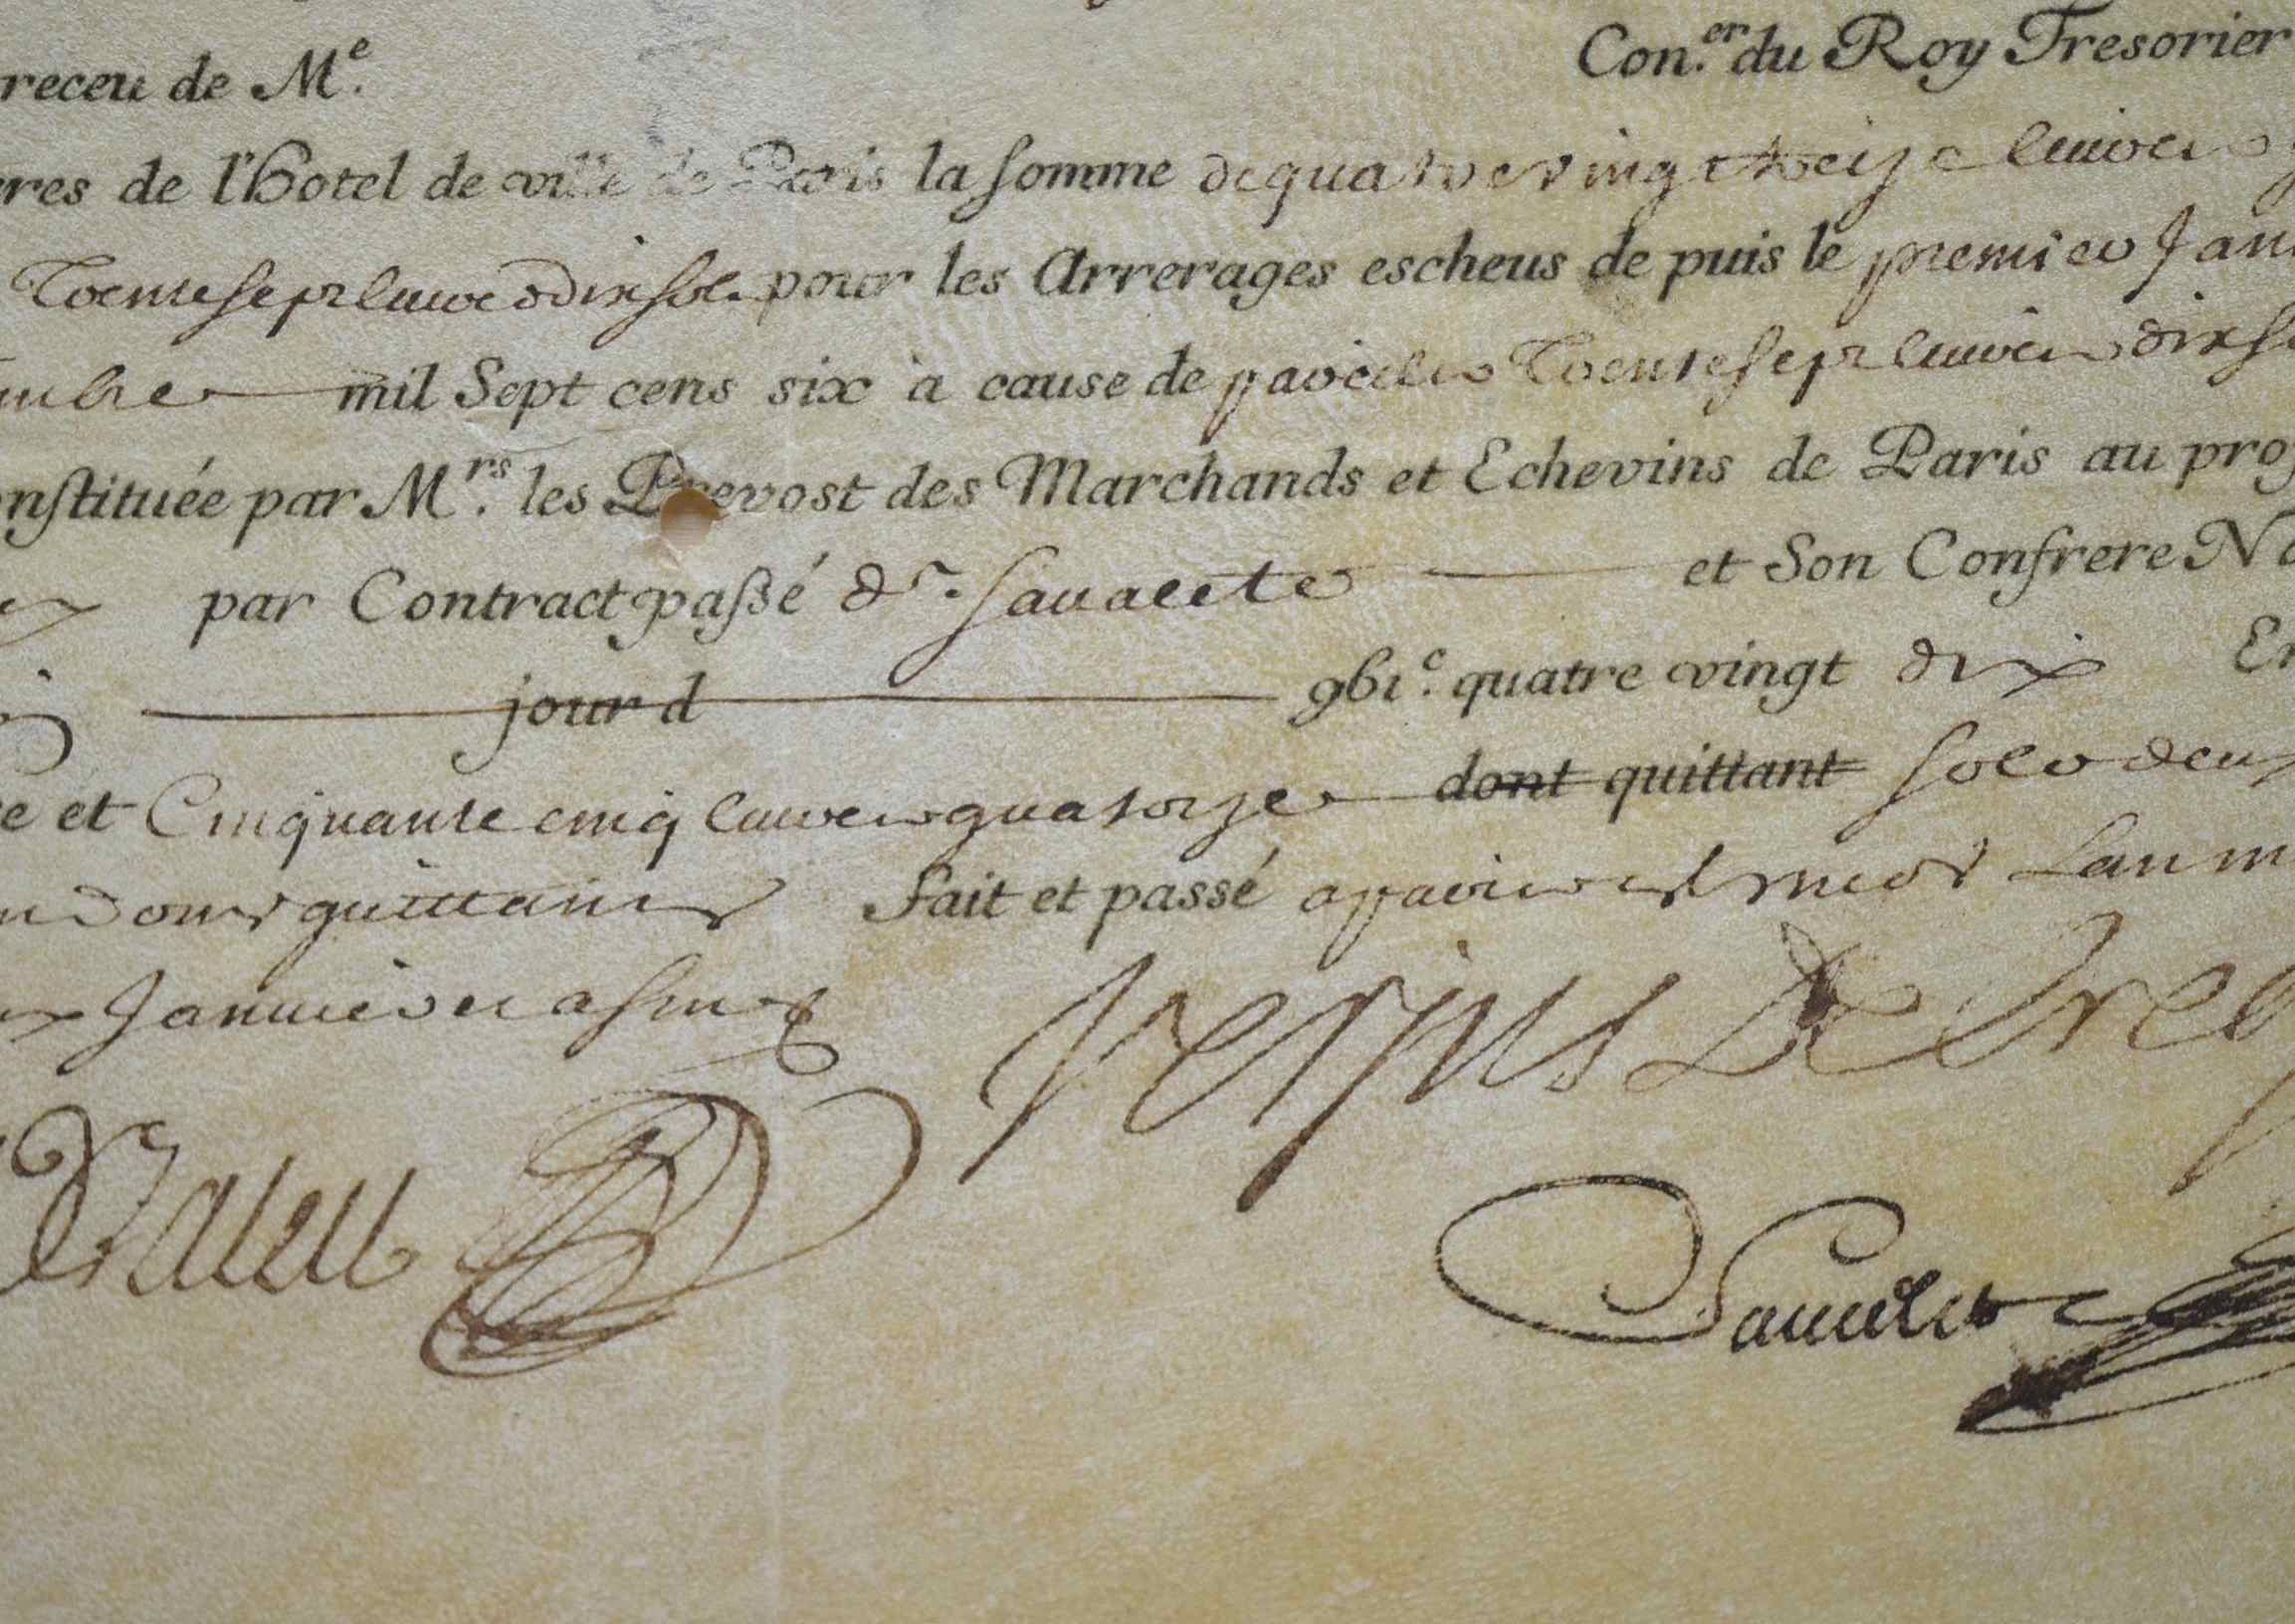 receu de M.e Con.er du Roy Tresorier
res de l'Hotel de ville de Paris la somme de quatre vingt treize livres
Trente sept livres dix sols pour les Arrerages escheus de puis le premier Jan
embre mil Sept cens six à cause de pareilles Trente sept livres dix so
onstituée par M.rs les Prevost des Marchands et Echevins de Paris au pro
par Contract passé d.t Savalete et Son Confrere No
jour d 9bi.c quatre vingt dix En
e et Cinquante cinq livres quatorze dont quittant sols deux
dont quittant Fait et passé a paris es Lan m
Janvier et a signé
Savalete